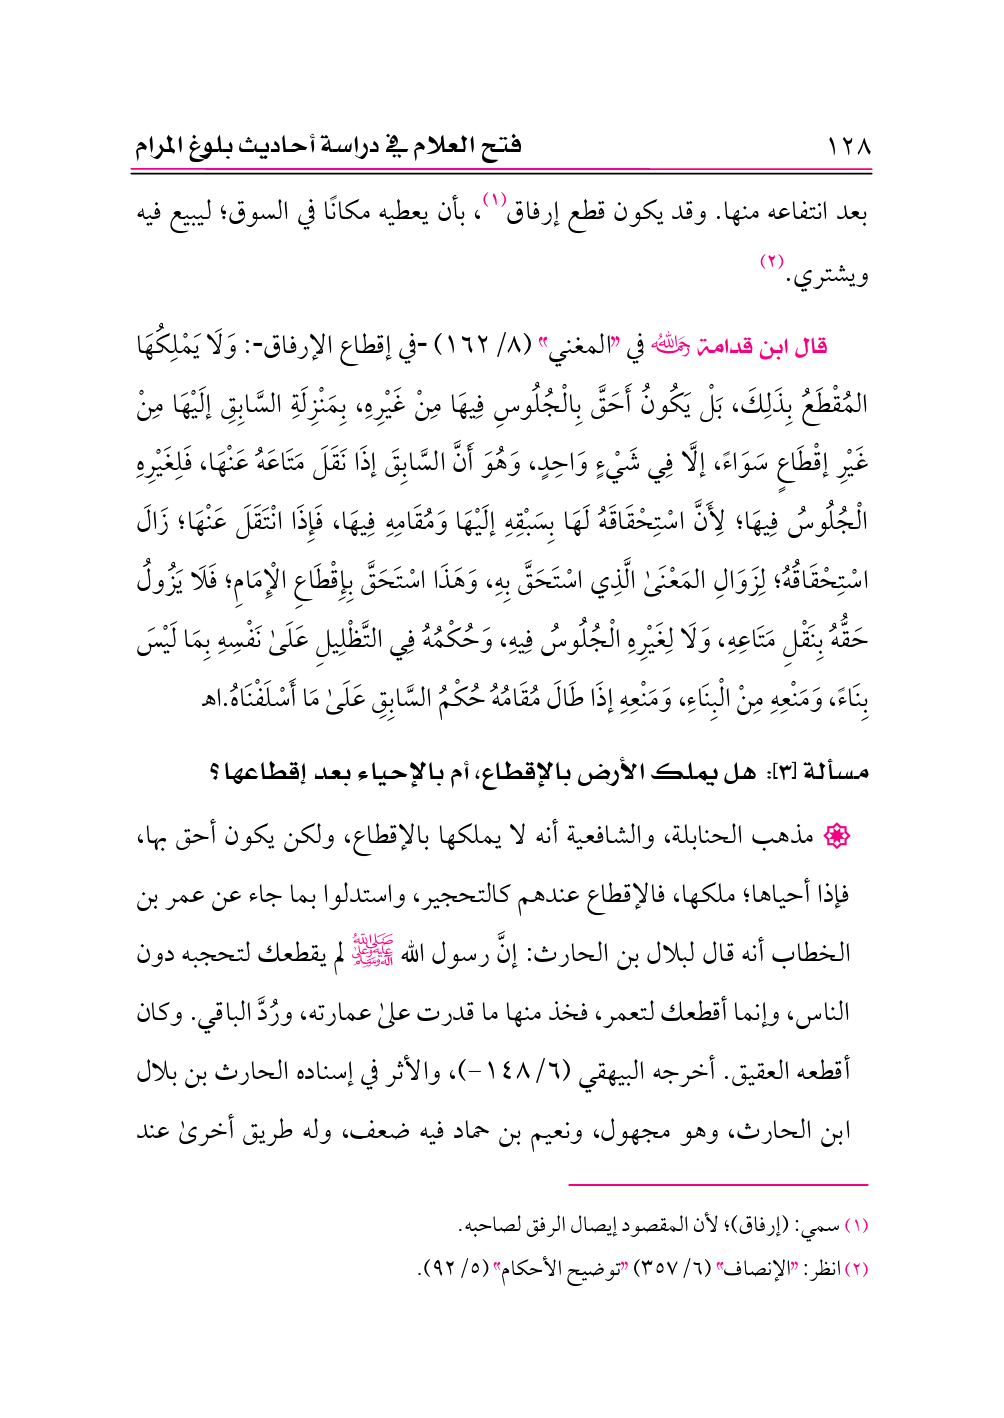 ١٢٨ فتح العلام في دراسة أحاديث بلوغ المرام
بعد انتفاعه منها. وقد يكون قطع إرفاق(١)، بأن يعطيه مكانًا في السوق؛ ليبيع فيه
ويشتري.(٢)
قال ابن قدامة رحمه الله في "المغني" (٨/ ١٦٢) -في إقطاع الإرفاق-: وَلَا يَمْلِكُهَا
المُقْطَعُ بِذَلِكَ، بَلْ يَكُونُ أَحَقَّ بِالْجُلُوسِ فِيهَا مِنْ غَيْرِهِ، بِمَنْزِلَةِ السَّابِقِ إلَيْهَا مِنْ
غَيْرِ إقْطَاعٍ سَوَاءً، إلَّا فِي شَيْءٍ وَاحِدٍ، وَهُوَ أَنَّ السَّابِقَ إذَا نَقَلَ مَتَاعَهُ عَنْهَا، فَلِغَيْرِهِ
الْجُلُوسُ فِيهَا؛ لِأَنَّ اسْتِحْقَاقَهُ لَهَا بِسَبْقِهِ إلَيْهَا وَمُقَامِهِ فِيهَا، فَإِذَا انْتَقَلَ عَنْهَا؛ زَالَ
اسْتِحْقَاقُهُ؛ لِزَوَالِ المَعْنَىٰ الَّذِي اسْتَحَقَّ بِهِ، وَهَذَا اسْتَحَقَّ بِإِقْطَاعِ الْإِمَامِ؛ فَلَا يَزُولُ
حَقُّهُ بِنَقْلِ مَتَاعِهِ، وَلَا لِغَيْرِهِ الْجُلُوسُ فِيهِ، وَحُكْمُهُ فِي التَّظْلِيلِ عَلَىٰ نَفْسِهِ بِمَا لَيْسَ
بِنَاءً، وَمَنْعِهِ مِنْ الْبِنَاءِ، وَمَنْعِهِ إذَا طَالَ مُقَامُهُ حُكْمُ السَّابِقِ عَلَىٰ مَا أَسْلَفْنَاهُ.اهـ
مسألة [٣]: هل يملك الأرض بالإقطاع، أم بالإحياء بعد إقطاعها؟
مذهب الحنابلة، والشافعية أنه لا يملكها بالإقطاع، ولكن يكون أحق بها،
فإذا أحياها؛ ملكها، فالإقطاع عندهم كالتحجير، واستدلوا بما جاء عن عمر بن
الخطاب أنه قال لبلال بن الحارث: إنَّ رسول الله صلى الله عليه وعلى آله وسلم لم يقطعك لتحجبه دون
الناس، وإنما أقطعك لتعمر، فخذ منها ما قدرت علىٰ عمارته، ورُدَّ الباقي. وكان
أقطعه العقيق. أخرجه البيهقي (٦/ ١٤٨-)، والأثر في إسناده الحارث بن بلال
ابن الحارث، وهو مجهول، ونعيم بن حماد فيه ضعف، وله طريق أخرىٰ عند
(١) سمي: (إرفاق)؛ لأن المقصود إيصال الرفق لصاحبه.
(٢) انظر: "الإنصاف" (٦/ ٣٥٧) "توضيح الأحكام" (٥/ ٩٢).